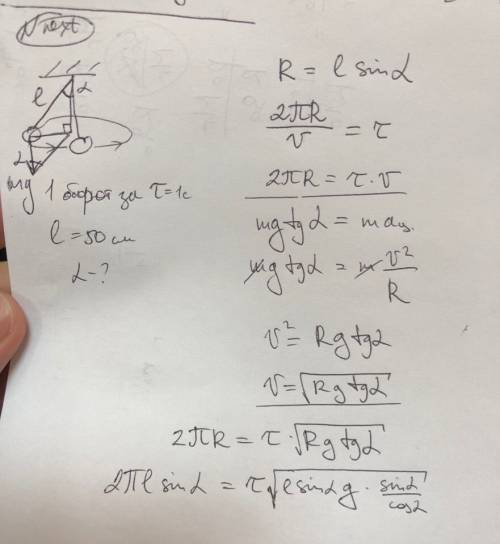 N next
l α
α
mg
1 оборот за τ=1с
l = 50 см
α - ?
R = l sinα
2πR/v = τ
2πR = τ·v
mg tgα = maц.
mg tgα = m v²/R
v² = Rg tgα
v = √(Rg tgα)
2πR = τ·√(Rg tgα)
2πl sinα = τ√(l sinα g · sinα/cosα)